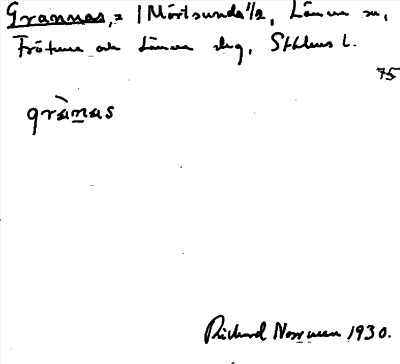 Grannas, = 1 Mörtsunda 1/2, Länna sn,
Frötuna och Länna slg, Sthlms l.
75
grànas
Richard Norrman 1930.